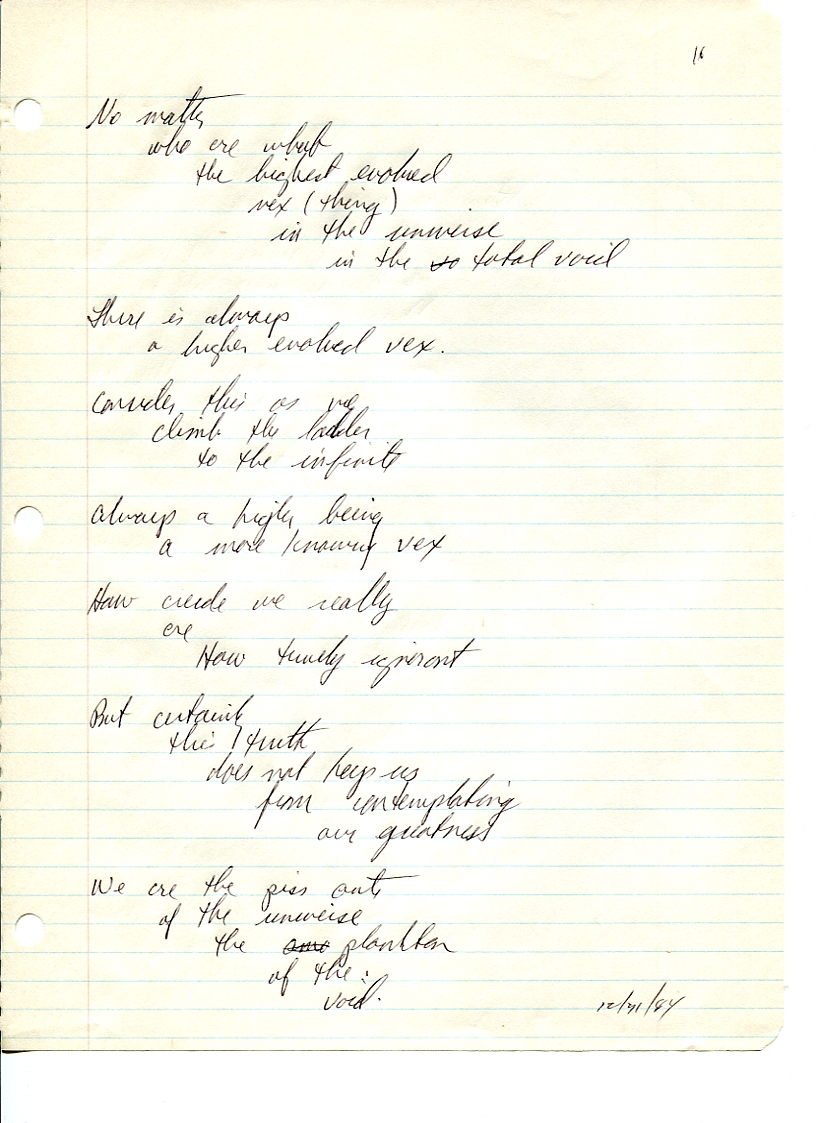 16
No matter
who are what
the highest evolved
vex (thing)
in the universe
in the so total void
There is always
a higher evolved vex.
Consider this as we
climb the ladder
to the infinite
Always a higher being
a more knowing vex
How crude we really
are
How ignorant
But certainly
this truth
does not keep us
from contemplating
our greatness
We are the piss ants
of the universe
the plankton
of the:
void.
12/31/84